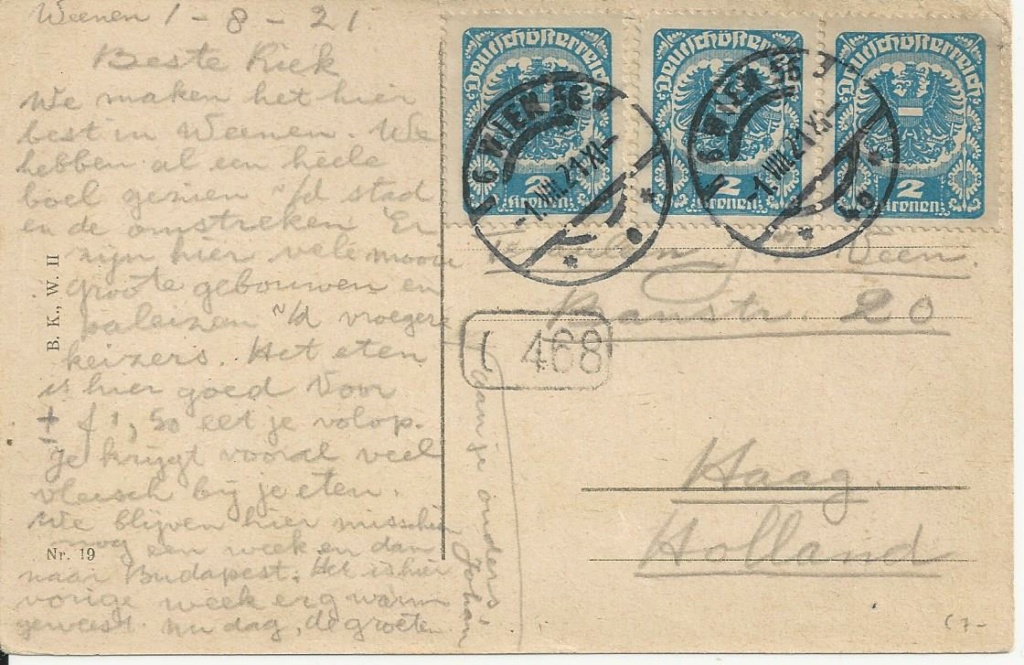 Weenen 1-8-21
Beste Riek
We maken het hier
best in Weenen. We
hebben al een heele
boel gezien v/d stad
en de omstreken. Er
zijn hier vele mooie
groote gebouwen en
paleizen v/d vroegere
keizers. Het eten
is hier goed voor
+ f 1,50 eet je volop.
Je krijgt vooral veel
vleesch bij je eten.
We blijven hier misschien
nog een week en dan
naar Budapest. Het is hier
vorige week erg warm
geweest. nu dag, de groeten
aan je ouders
Johan
B. K., W. II
Nr. 19
Deutschösterreich
2
Kronen
Deutschösterreich
2
Kronen
Deutschösterreich
2
Kronen
WIEN 56
-1.VIII.21.XI-
WIEN 56
-1.VIII.21.XI-
Veen.
20
468
Haag.
Holland